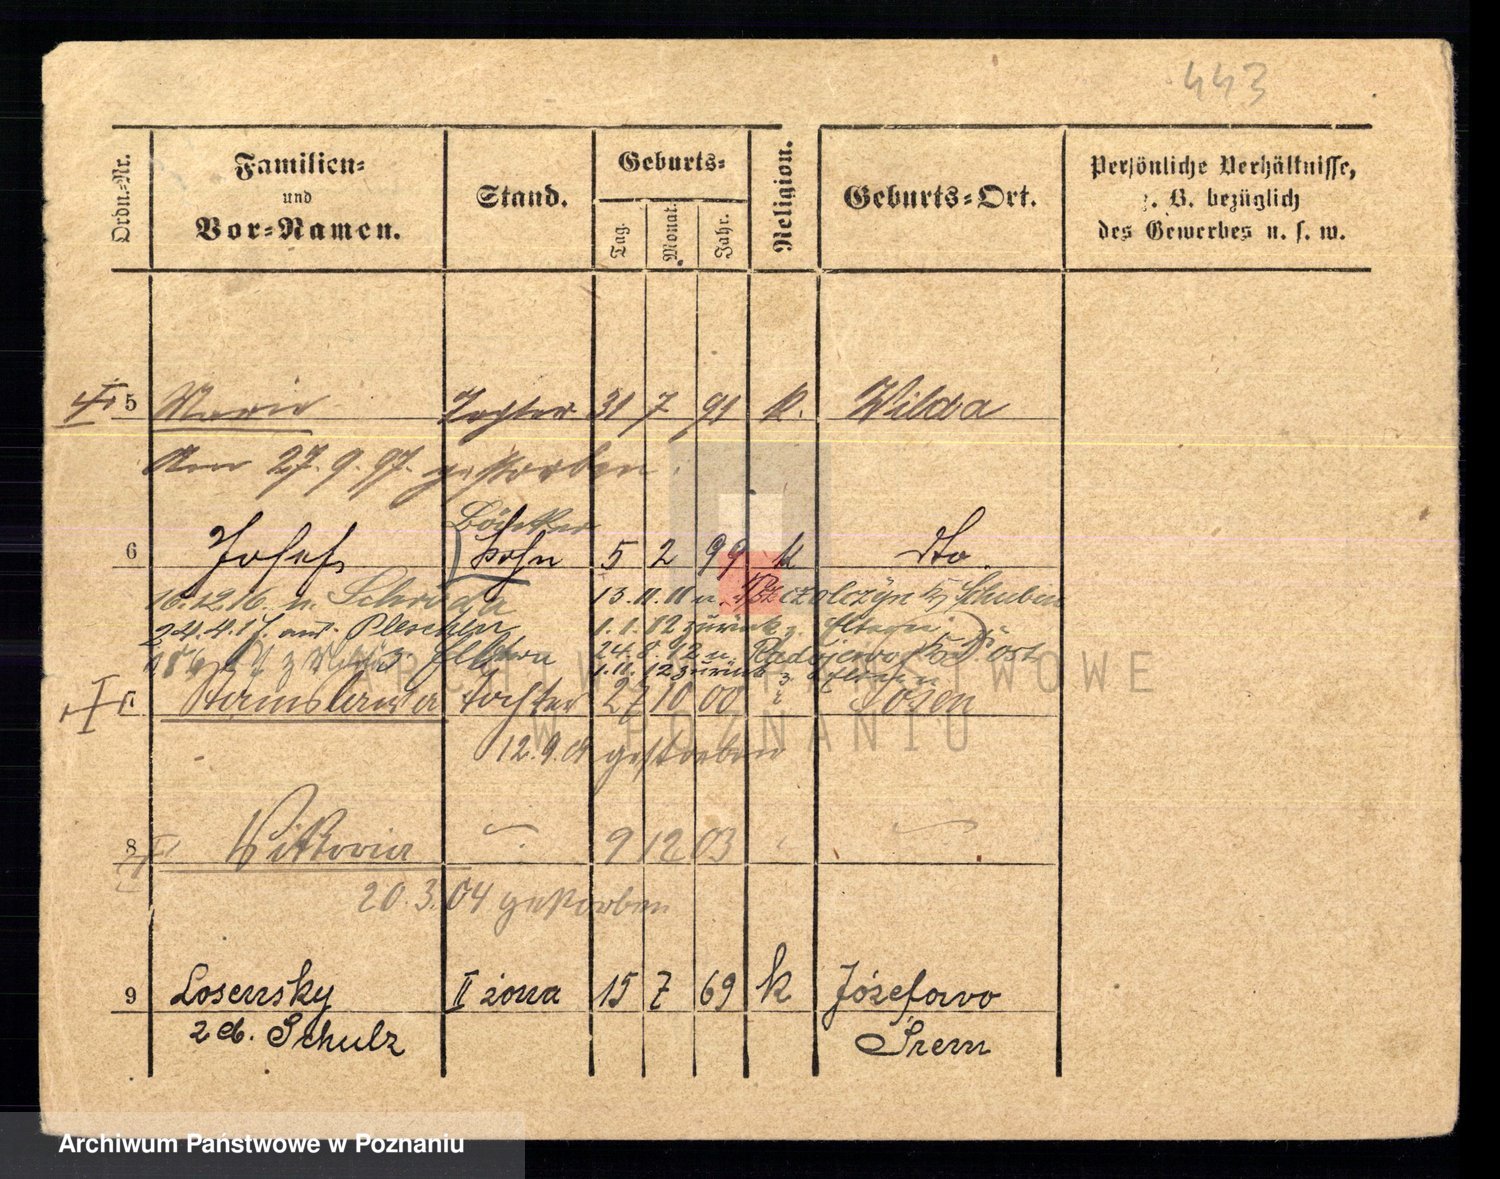 443
Ordn.-Nr.
Familien-
und
Vor-Namen.
Stand.
Geburts-
Tag.
Monat.
Jahr.
Religion.
Geburts-Ort.
Persönliche Verhältnisse,
z. B. bezüglich
des Gewerbes u. s. w.
5 Marie Tochter 31 7 91 k. Wilda
Am 27.9.97. gestorben.
Böttcher
6 Josef Sohn 5 2 99 k dto.
16.12.16. n. Schroda 13.11.11 n. Schubin
24.4.17. aus Pleschen 1.1.12 zurück z. Eltern
z. Eltern 24.8.12 n. Radojewo Kr. P. Ost
1.11.12 zurück z. Eltern
Stanislawa Tochter 27 10 00 " Posen
12.9.01 gestorben
8 Viktoria 9 12 03
20.3.04 gestorben
9 Losensky II żona 15 7 69 k Józefowo
z d. Schulz Śrem
ARCHIWUM PAŃSTWOWE
W POZNANIU
Archiwum Państwowe w Poznaniu